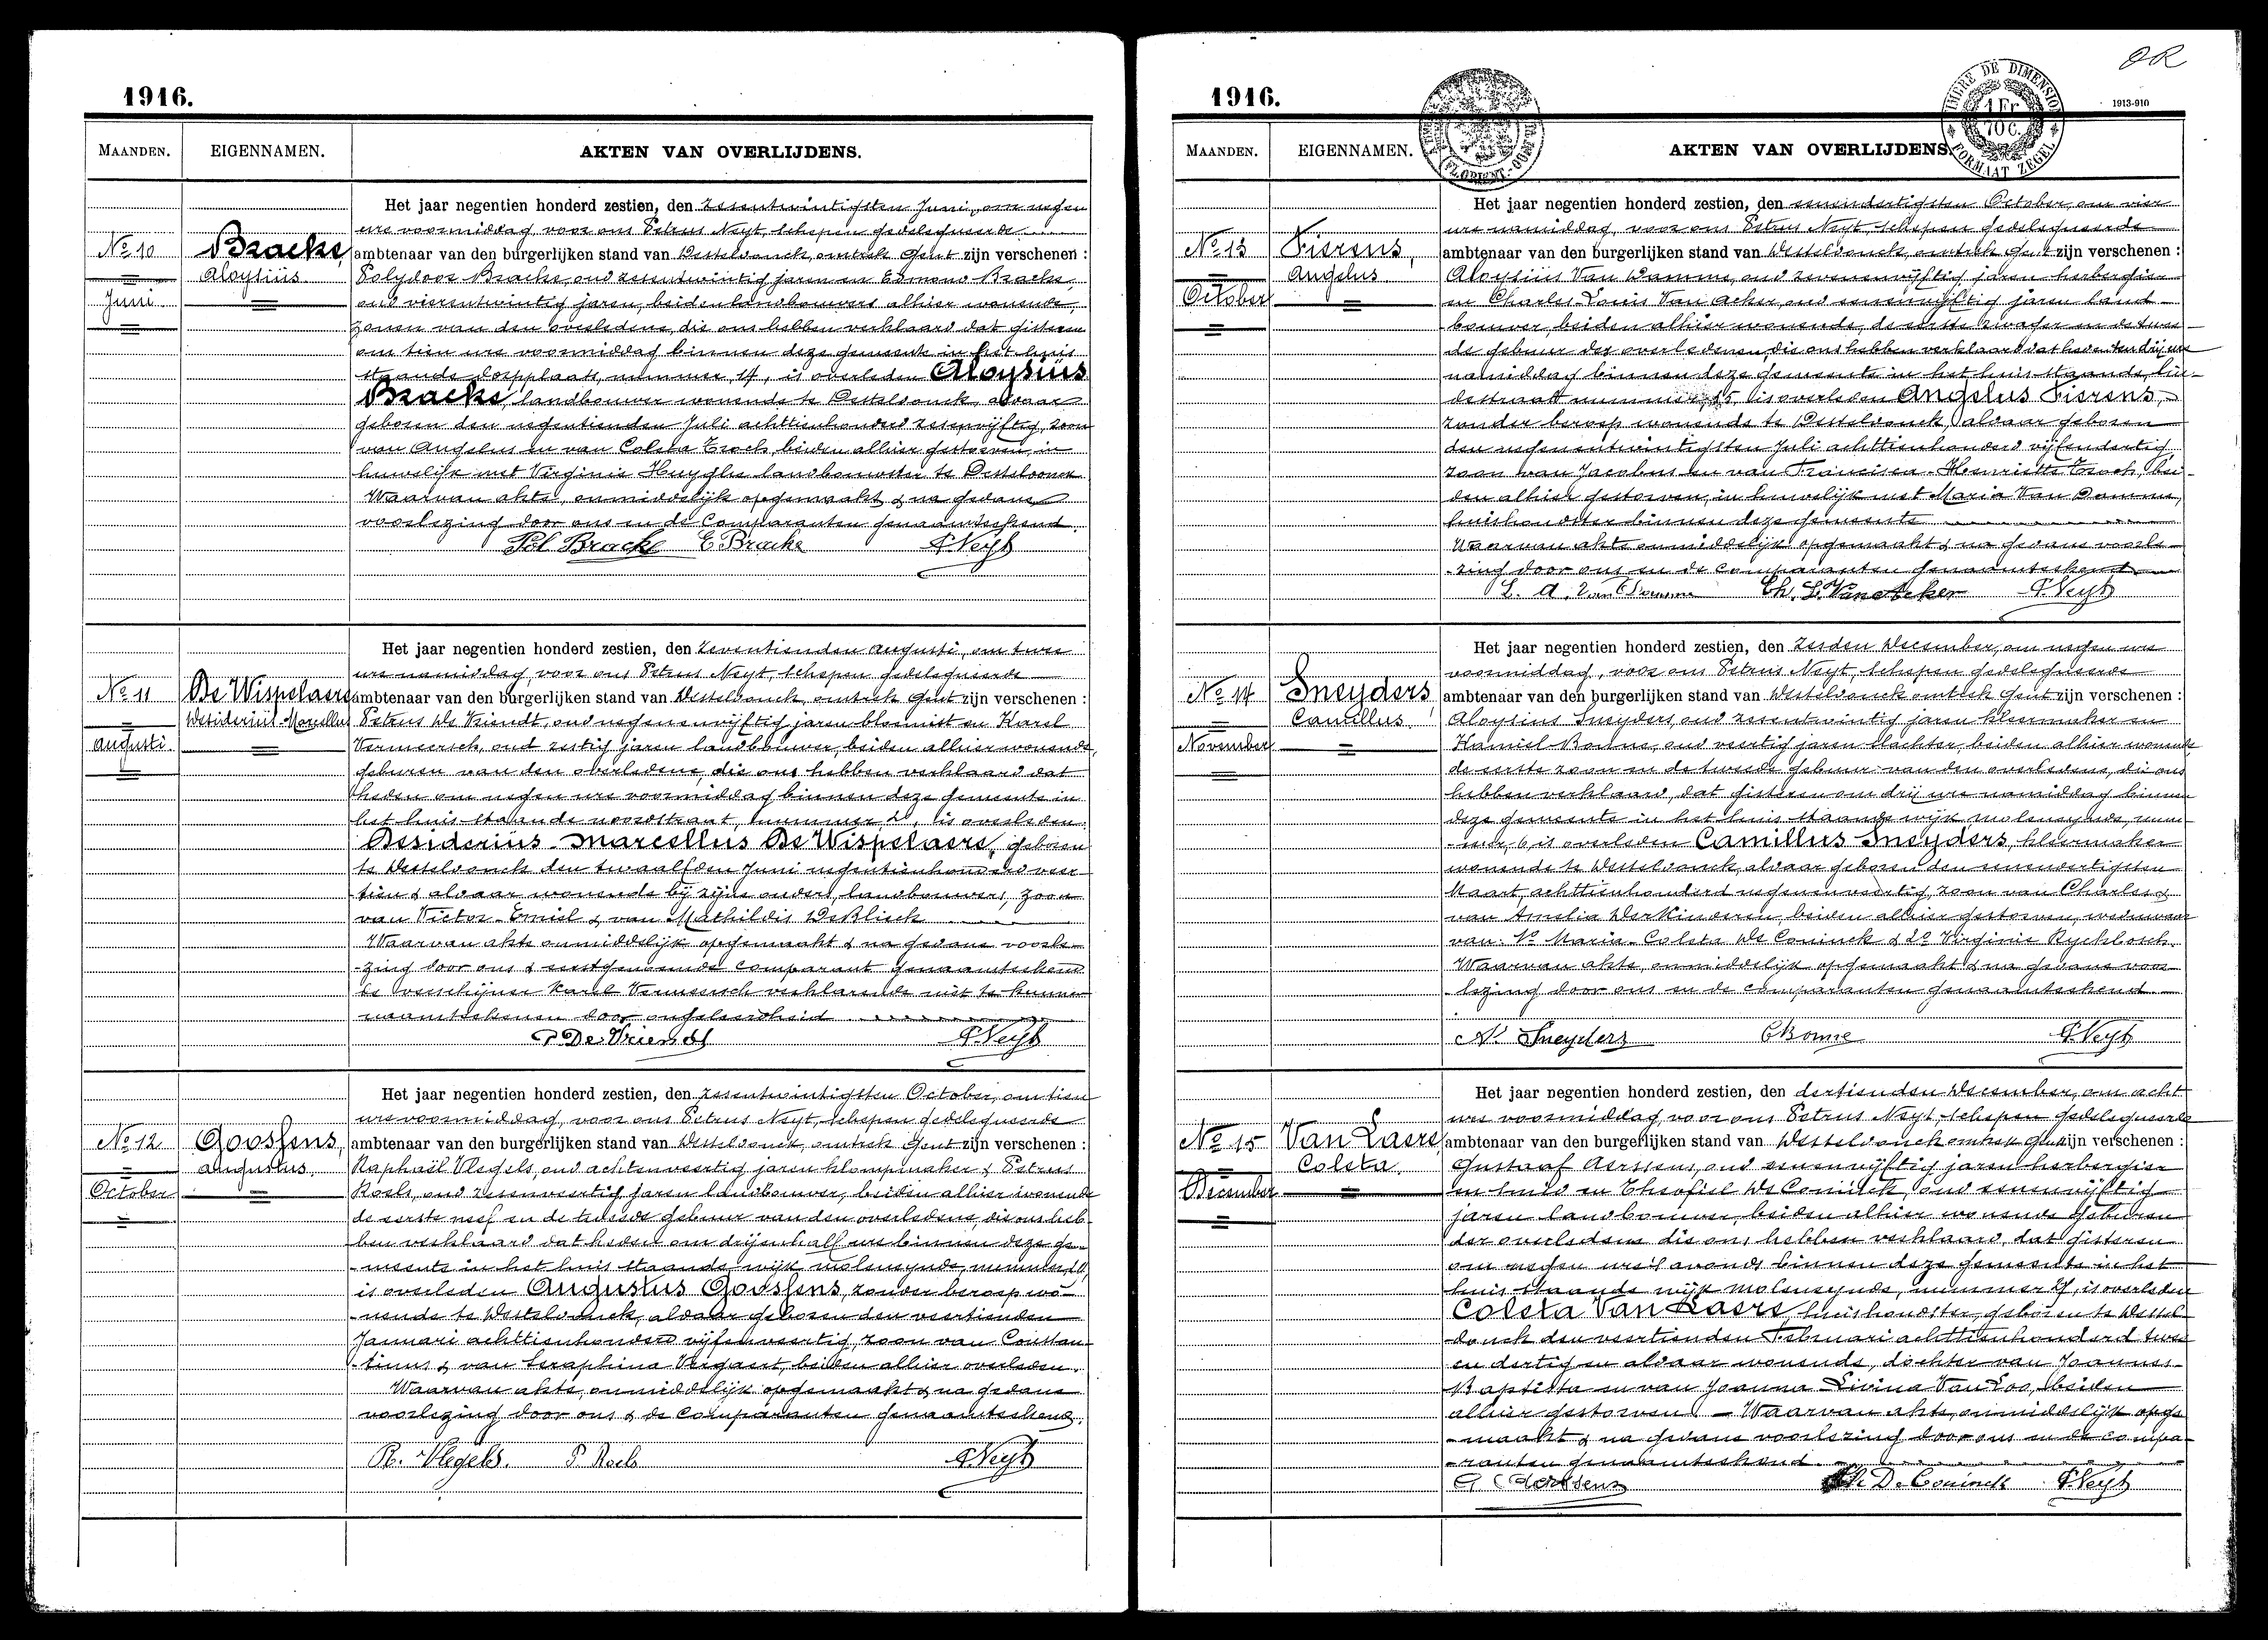 1916.
MAANDEN.
EIGENNAMEN.
AKTEN VAN OVERLIJDENS.
No 10
Juni
Bracke,
Aloysiüs
Het jaar negentien honderd zestien, den zesentwintigsten Juni, om negen
ure voormiddag voor ons Petrus Neyt, schepen gedelegueerde
ambtenaar van den burgerlijken stand van Desteldonck, omtrek Gent zijn verschenen :
Polydoor Bracke, oud zesentwintig jaren en Edmond Bracke,
oud vierentwintig jaren, beiden landbouwers alhier wonende,
zonen van den overledene, die ons hebben verklaard dat gisteren
om tien ure voormiddag binnen deze gemeente in het huis
staande dorpplaats, nummer 14, is overleden Aloysiüs
Bracke, landbouwer wonende te Desteldonck, aldaar
geboren den negentienden Juli achttienhonderd zesenvijftig, zoon
van Angelus en van Coleta Troch, beiden alhier gestorven, in
huwelijk met Virginie Huyghe landbouwster te Desteldonck
Waarvan akte, onmiddelijk opgemaakt & na gedane
voorlezing door ons en de Comparanten genaamteekend.
Pol Bracke E. Bracke P. Neyt
No 11
Augusti.
De Wispelaere
Desideriüs-Marcellus
Het jaar negentien honderd zestien, den zeventienden Augusti, om twee
ure namiddag, voor ons Petrus Neyt, schepen gedelegueerde
ambtenaar van den burgerlijken stand van Desteldonck, omtrek Gent zijn verschenen :
Petrus De Vriendt, oud negenenvijftig jaren bloemist en Karel
Vermeersch, oud zestig jaren landbouwer, beiden alhier wonende,
geburen van den overledene, die ons hebben verklaard dat
heden om negen ure voormiddag binnen deze gemeente in
het huis staande noordstraat, nummer 2, is overleden
Desideriüs-Marcellus De Wispelaere, geboren
te Desteldonck den twaalfden Juni negentienhonderd veer-
tien & aldaar wonende bij zijne ouders, landbouwers, zoon
van Victor-Emiel & van Mathildis De Blieck
Waarvan akte onmiddelijk opgemaakt & na gedane voorle-
-zing door ons & eerstgenoemde comparant genaamteekend
de verschijner Karel Vermeersch verklarende niet te kunnen
naamteekenen door ongeleerdheid
P De Vriendt P. Neyt
No 12
October
Goossens,
Augustus.
Het jaar negentien honderd zestien, den zesentwintigsten October, om tien
ure voormiddag, voor ons Petrus Neyt, schepen gedelegueerde
ambtenaar van den burgerlijken stand van Desteldonck, omtrek Gent zijn verschenen :
Raphaël Vlegels, oud achtenveertig jaren klompmaker & Petrus
Roels, oud zesenveertig jaren landbouwer, beiden alhier wonende
de eerste neef en de tweede gebuur van den overledene, die ons heb-
ben verklaard dat heden om drijenhalf ure binnen deze ge-
-meente in het huis staande wijk moleneynde, nummer
is overleden Augustus Goossens, zonder beroep wo-
-nende te Desteldonck, aldaar geboren den veertienden
Januari achttienhonderd vijfenveertig, zoon van Constan-
-tinus & van Seraphina Vergaert, beiden alhier overleden.
Waarvan akte, onmiddelijk opgemaakt & na gedane
voorlezing door ons & de Comparanten genaamteekend.
R. Vlegels. P. Roels P. Neyt
OR
1916.
1913-910
TIMBRE DE DIMENSION
1 Fr
10 C.
FORMAAT ZEGEL
MAANDEN.
EIGENNAMEN.
AKTEN VAN OVERLIJDENS.
No 13
October
Fierens,
Angelus
Het jaar negentien honderd zestien, den eenendertigsten October, om vier
ure namiddag, voor ons Petrus Neyt, schepen gedelegueerde
ambtenaar van den burgerlijken stand van Desteldonck, omtrek Gent zijn verschenen :
Aloysiüs Van Damme, oud zevenenvijftig jaren herbergier
en Charles Louis Van Acker, oud eenenvijftig jaren land-
bouwer, beiden alhier wonende, de eerste zwager en de twee-
de gebuur des overledenen, die ons hebben verklaard dat heden ten drij ure
namiddag binnen deze gemeente in het huis staande, lin-
destraat nummer, 15, is overleden Angelus Fierens,
zonder beroep wonende te Desteldonck, aldaar geboren
den negenentwintigsten Juli achttienhonderd vijfendertig
zoon van Jacobus en van Francisca-Henriette Troch, bei-
den alhier gestorven, in huwelijk met Maria Van Damme,
huishoudster binnen deze gemeente
Waarvan akte onmiddelijk opgemaakt & na gedane voorle-
-zing door ons en de comparanten genaamteekend
L. A. Van Damme Ch. L. Van Acker P. Neyt
No 14
November
Sneyders
Camillus
Het jaar negentien honderd zestien, den zesden December, om negen ure
voormiddag, voor ons Petrus Neyt, schepen gedelegueerde
ambtenaar van den burgerlijken stand van Desteldonck omtrek Gent zijn verschenen :
Aloysius Sneyders, oud zesentwintig jaren kleermaker en
Kamiel Bonne, oud veertig jaren slachter, beiden alhier wonende
de eerste zoon en de tweede gebuur van den overledene, die ons
hebben verklaard, dat gisteren om drij ure namiddag binnen
deze gemeente in het huis staande wijk moleneynde, num-
-mer, 6 is overleden Camillus Sneyders, kleermaker
wonende te Desteldonck, aldaar geboren den eenendertigsten
Maart, achttienhonderd negenenveertig, zoon van Charles &
van Amelia Derkinderen, beiden alhier gestorven, weduwnaar
van: 1o Maria-Coleta De Coninck & 2o Virginie Ryckbosch.
Waarvan akte, onmiddelijk opgemaakt & na gedane voor-
-lezing door ons en de comparanten genaamteekend
Al. Sneyders C Bonne P. Neyt
No 15
December
Van Laere,
Coleta.
Het jaar negentien honderd zestien, den dertienden December, om acht
ure voormiddag, voor ons Petrus Neyt, schepen gedelegueerde
ambtenaar van den burgerlijken stand van Desteldonck omtrek Gent zijn verschenen :
Gustaaf Aerssens, oud eenenvijftig jaren herbergier
en smid en Theofiel De Coninck, oud eenenvijftig
jaren landbouwer, beiden alhier wonende geburen
der overledene die ons hebben verklaard, dat gisteren
om negen ure 's avonds binnen deze gemeente in het
huis staande wijk moleneynde, nummer 27, is overleden
Coleta Van Laere huishoudster, geboren te Destel-
-donck den veertienden Februari achttienhonderd twee
en dertig en aldaar wonende, dochter van Joannes-
Baptista en van Joanna Livina Van Loo, beiden
alhier gestorven. - Waarvan akte, onmiddelijk opge-
-maakt & na gedane voorlezing door ons en de compa-
-ranten genaamteekend
G Aerssens Th. De Coninck P. Neyt